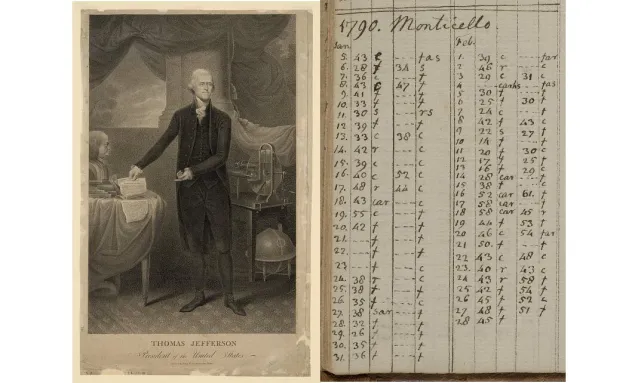 THOMAS JEFFERSON
President of the United States
1790. Monticello.
Jan
5. 43 c --- tas
6. 28 f 34 s
7. 36 c --- f
8. 43 c 47 f
9. 41 f --- f
10. 33 f --- f
11. 30 s --- rs
12. 39 f --- f
13. 33 c 38 c
14. 42 r --- c
15. 39 c --- c
16. 40 c 52 c
17. 48 r 44 c
18. 43 car --- c
19. 55 c --- f
20. 42 f --- f
21. --- --- f
22. --- --- f
23. --- f --- c
24. 38 r --- c
25. 38 f --- f
26. 35 f --- c
27. 38 --- f
28. 32 f --- f
29. 26 f --- f
30. 35 f --- f
31. 36 f --- f
Feb.
1. 39 c --- far
2. 46 r --- c
3. 29 c 31 c
4. --- tas
5. 30 f --- f
6. 25 f 30 f
7. 24 c --- f
8. 42 f 43 c
9. 22 s 27 f
10. 14 f --- f
11. 20 f 30 c
12. 17 f 25 f
13. 16 f 29 c
14. 28 car --- f
15. 38 f --- c
16. 52 car f
17. 58 car --- f
18. 58 car 45 r
19. 44 f 53 f
20. 46 c 54 far
21. 50. f --- f
22. 43 c 48 c
23. 40 r 43 c
24. 43 r 58 f
25. 42 f 54 f
26. 45 f 52 c
27. 48 f 51 f
28. 45 f